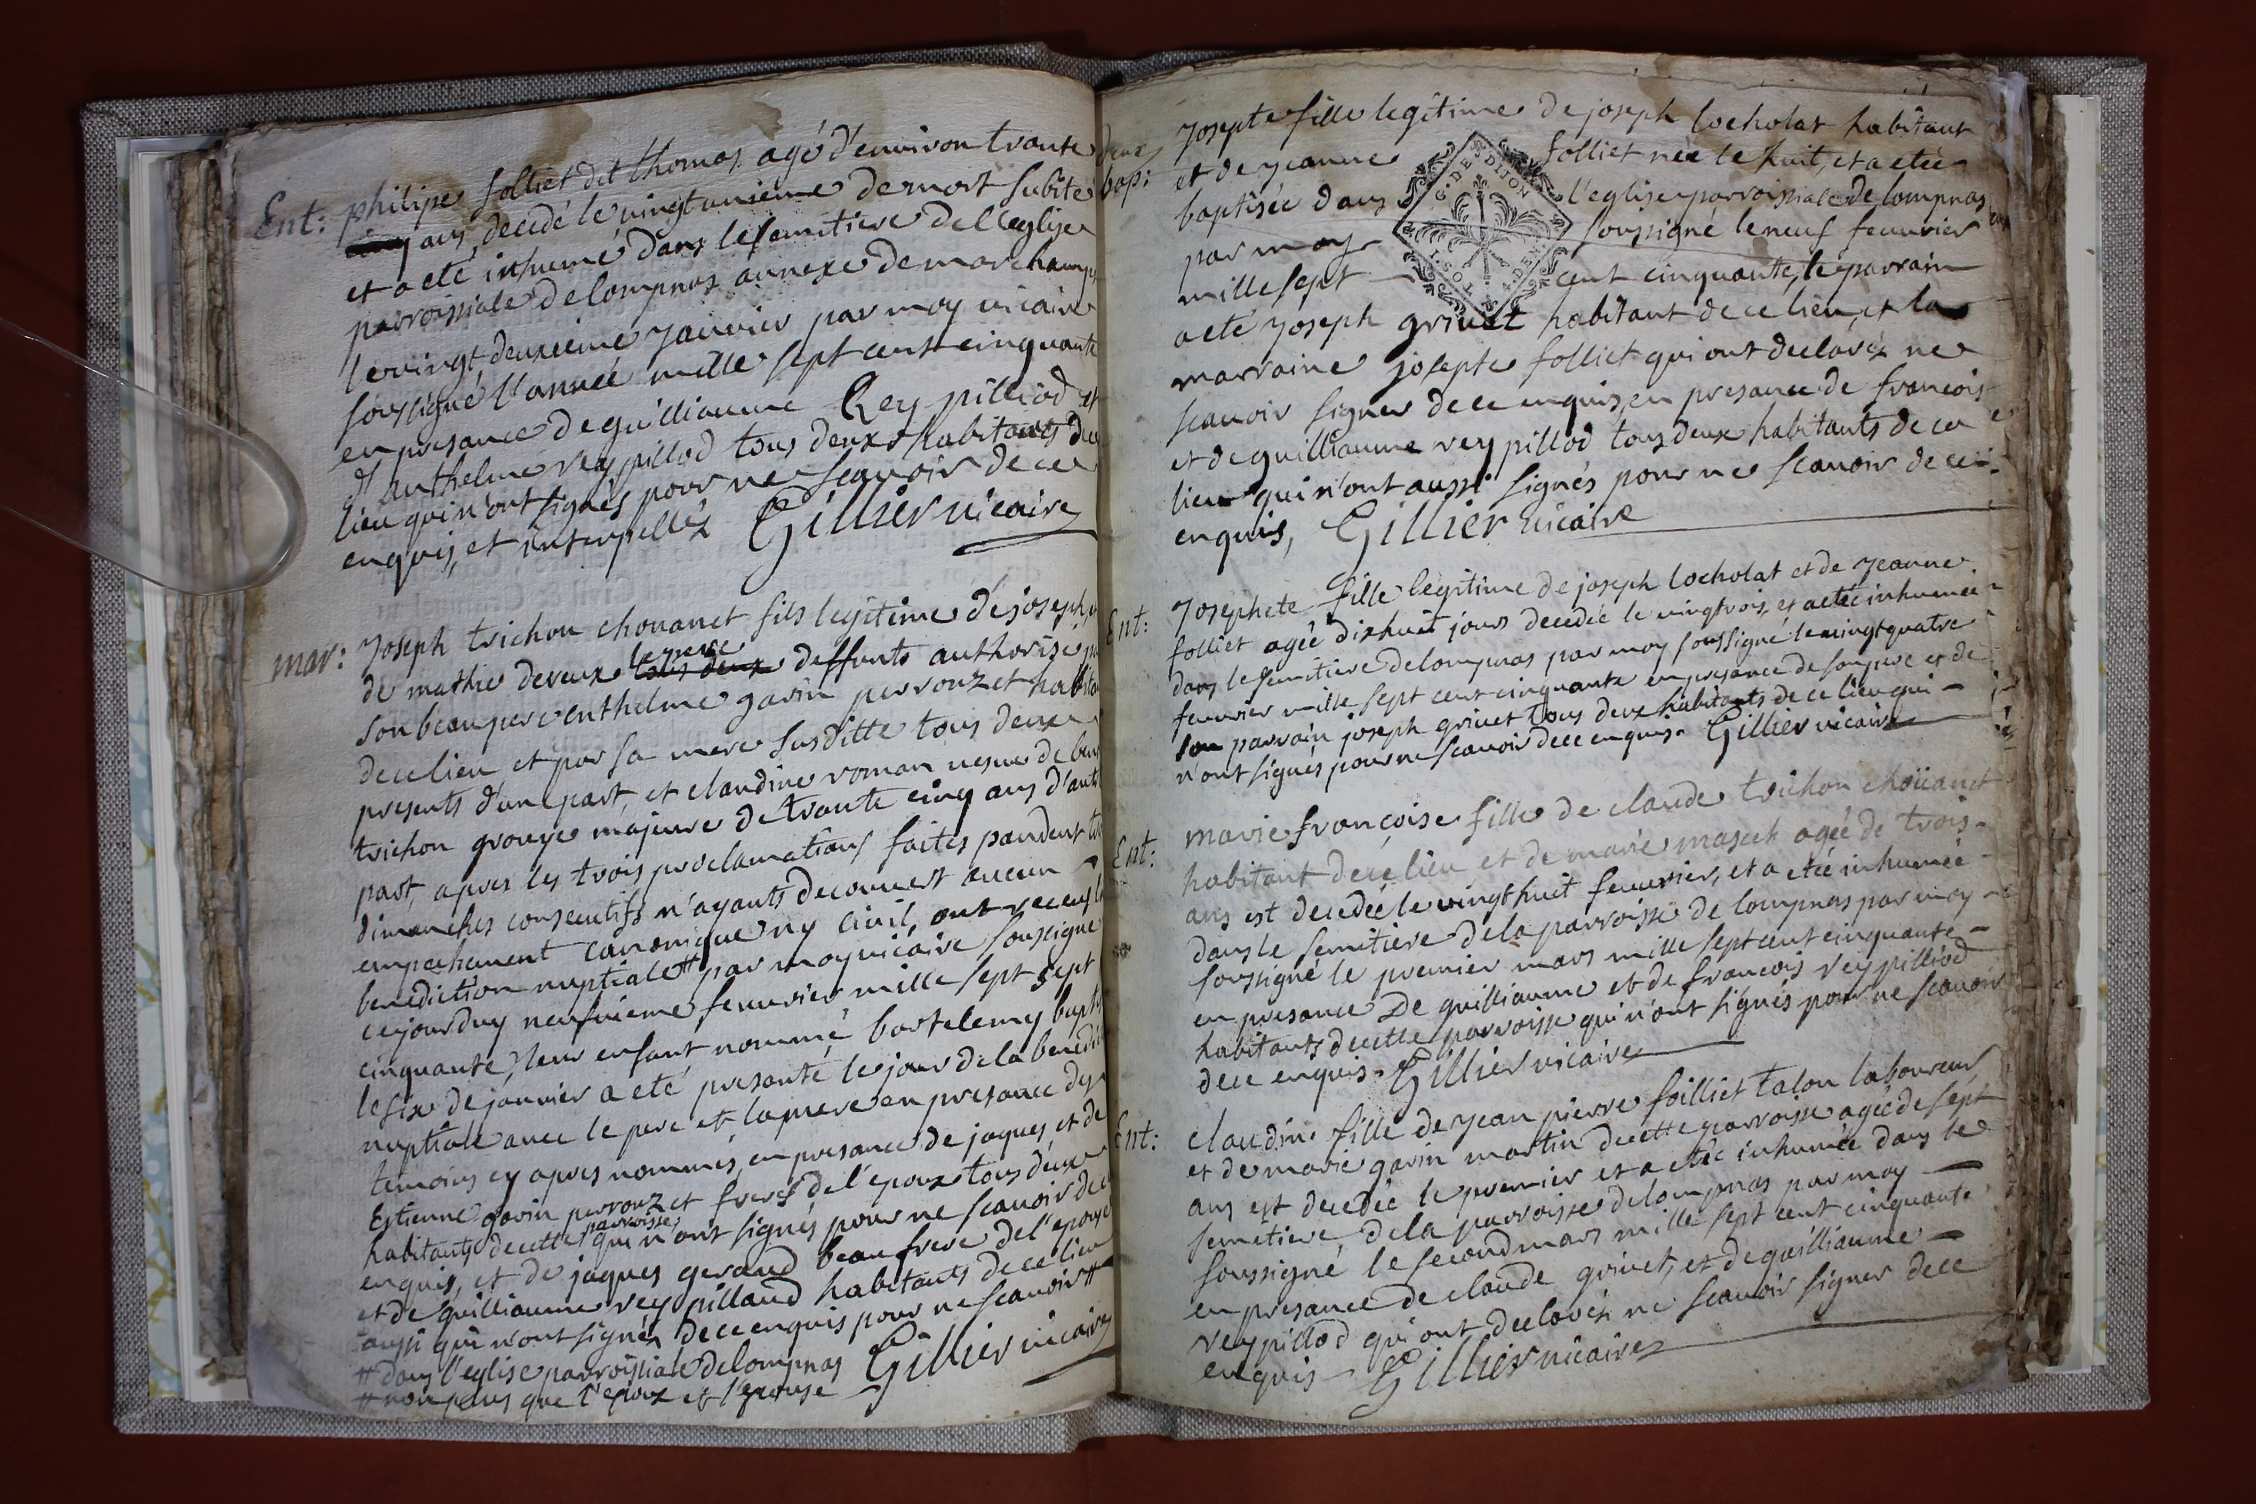 Ent: philipe folliet dit thomas agé d'environ trante deux
ans, decedé le vingtunieme de mort subite
et a eté inhumé dans le semitiere de l'eglise
parroissiale de lompnas annexe de marchamp
le vingt deuxieme janvier par moy vicaire
soussigné l'année mille sept cent cinquante
en presance de guilliaume Rey pilliod et
d'anthelme rey pillod tous deux habitants de ce
lieu qui n'ont signés pour ne scavoir de ce
enquis, et interpellés Gillier vicaire
mar: Joseph trichon chouanet fils legitime de joseph, et
de mathie devaux le pere deffunts authorisé par
son beau pere enthelme gavin perrouz et habitant
de ce lieu et par sa mere susditte tous deux
presents d'une part, et claudine roman vesve de
trichon grouye majeure de trante cinq ans d'autre
part, apres les trois proclamations faites pandent
dimanches consecutifs n'ayants decouvert aucun
empechement canonique ny civil, ont receus la
benediction nuptiale # par moy vicaire soussigné
cejourduy neufvieme feuvrier mille sept sept
cinquante, leur enfant nommé bartelemy baptisé
le six de janvier a eté presanté le jour de la benediction
nuptiale avec le pere et la mere en presance des
temoins cy apres nommés, en presance de jaques et de
Estienne gavin perrouz et freres de l'epoux tous deux
habitants de cette parroisse qui n'ont signés pour ne scavoir de ce
enquis, et de jaques gerand beau frere de l'epouse
et de guilliaume rey pillaud habitants de ce lieu
aussi qui n'ont signés de ce enquis pour ne scavoir #
# dans l'eglise parroissiale de lompnas Gillier vicaire
# non plus que l'epoux et l'epouse
bap: Josepte fille legitime de joseph locholat habitant
et de jeanne folliet née le huit, et a etée
baptisée dans l'eglise parroissiale de lompnas
par moy soussigné le neuf feuvrier
mille sept cent cinquante, le parrain
G. DE DIJON
a eté joseph grivet habitant de ce lieu, et la
marraine josepte folliet qui ont declarés ne
scavoir signer de ce enquis, en presance de francois
et de guilliaume rey pillod tous deux habitants de ce
lieu qui n'ont aussi signés pour ne scavoir de ce
enquis, Gillier vicaire
Ent: Josephete fille legitime de joseph locholat et de jeanne
folliet agée dixhuit jours decedée le vingtrois, et a etée inhumée
dans le semitiere de lompnas par moy soussigné le vingtquatre
feuvrier mille sept cent cinquante en presance de son pere et de
son parrain joseph grivet tous deux habitants de ce lieu qui
n'ont signés pour ne scavoir de ce enquis. Gillier vicaire
Ent: marie françoise fille de claude trichon choüanet
habitant de ce lieu, et de marie masset agée de trois
ans est decedée le vingthuit feuvrier, et a etée inhumée
dans le semitiere de la parroisse de lompnas par moy
soussigné le premier mars mille sept cent cinquante
en presance de guilliaume et de francois rey pilliod
habitants de cette parroisse qui n'ont signés pour ne scavoir
de ce enquis. Gillier vicaire
Ent: claudine fille de jean pierre foilliet talon laboureur
et de marie gavin martin de cette parroisse agée de sept
ans est decedée le premier et a etée inhumée dans le
semetiere de la parroisse de lompnas par moy
soussigné le second mars mille sept cent cinquante
en presance de claude grivet, et de guilliaume
rey pillod qui ont declarés ne scavoir signer de ce
enquis Gillier vicaire